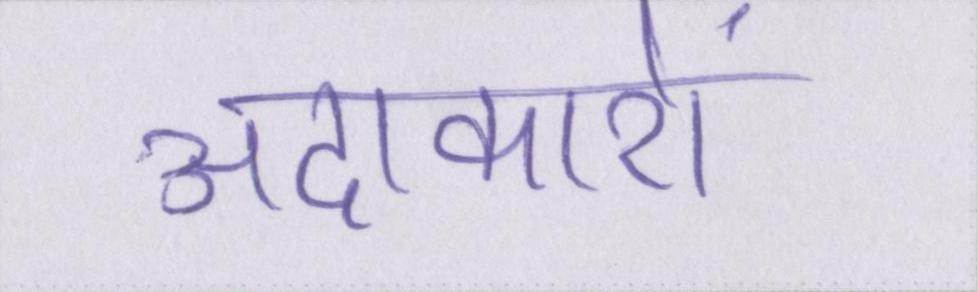 अदाकारों